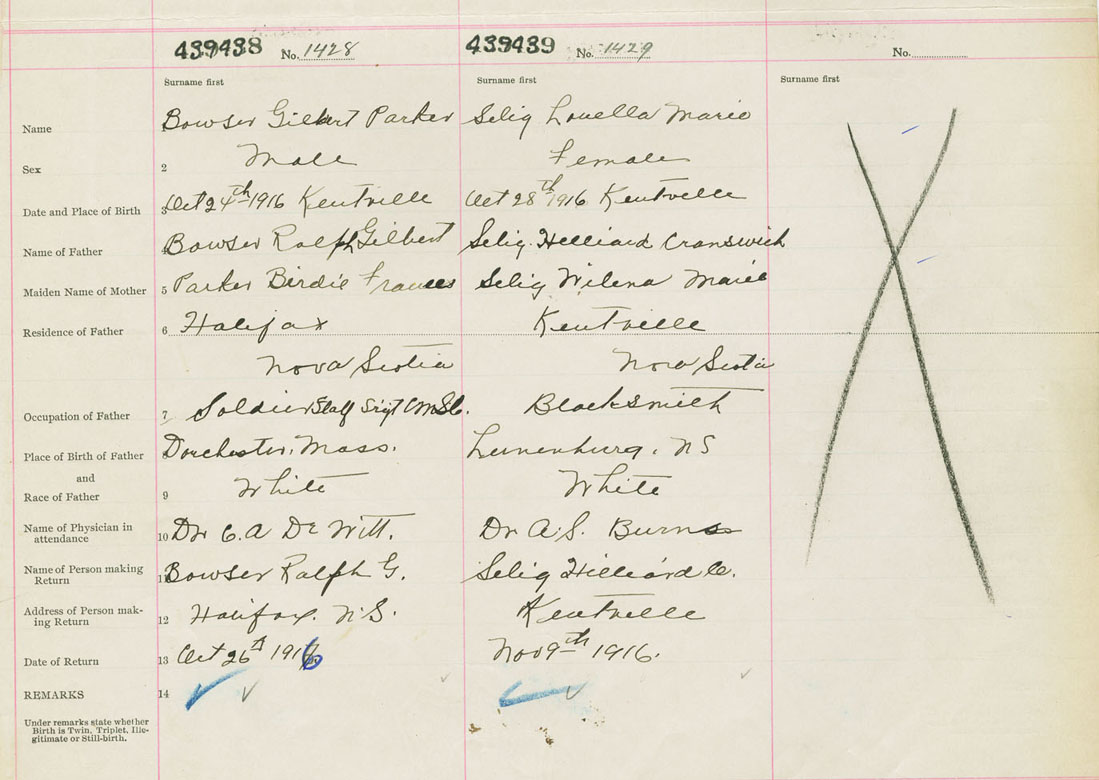 439438 No. 1428 439439 No. 1429 No.
Surname first Surname first Surname first
Name Bowser Gilbert Parker Selig Louella Marie
Sex 2 Male Female
Date and Place of Birth 3 Oct 24th 1916 Kentville Oct 28th 1916 Kentville
Name of Father 4 Bowser Ralph Gilbert Selig Helliard Cranswich
Maiden Name of Mother 5 Parker Birdie Frances Selig Wilena Marie
Residence of Father 6 Halifax Kentville
Nova Scotia Nova Scotia
Occupation of Father 7 Soldier Staff Srgt Blacksmith
Place of Birth of Father 8 Dorchester, Mass. Lunenburg, NS
and
Race of Father 9 White White
Name of Physician in
attendance 10 Dr C. A De Witt. Dr A. S. Burns
Name of Person making
Return 11 Bowser Ralph G. Selig Hilliard C.
Address of Person mak-
ing Return 12 Halifax. N.S. Kentville
Date of Return 13 Oct 26th 1916 Nov 9th 1916.
REMARKS 14
Under remarks state whether
Birth is Twin, Triplet, Ille-
gitimate or Still-birth.